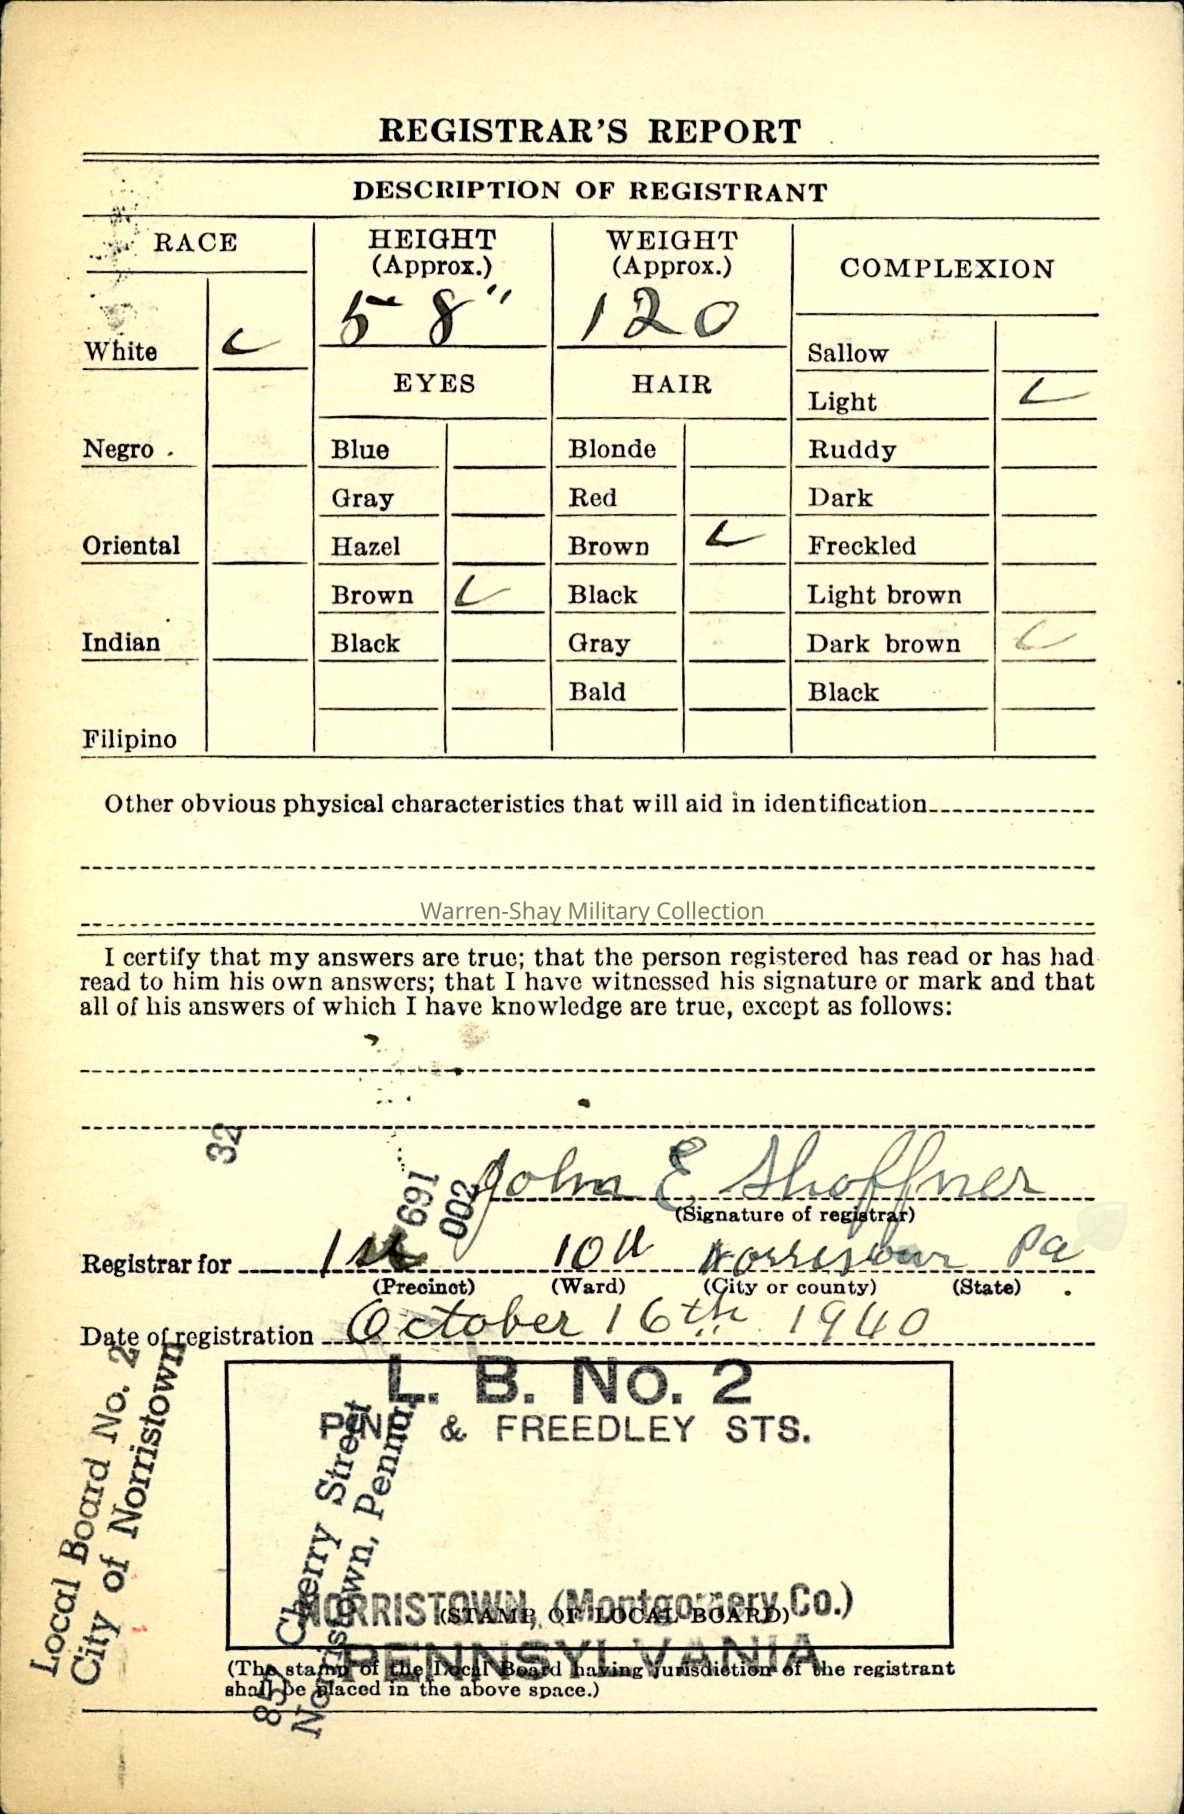 REGISTRAR'S REPORT
DESCRIPTION OF REGISTRANT
RACE
HEIGHT
(Approx.)
5 8"
WEIGHT
(Approx.)
120
COMPLEXION
White
EYES
HAIR
Sallow
Light
Negro
Blue
Blonde
Ruddy
Gray
Red
Dark
Oriental
Hazel
Brown
Freckled
Brown
Black
Light brown
Indian
Black
Gray
Dark brown
Bald
Black
Filipino
Other obvious physical characteristics that will aid in identification
Warren-Shay Military Collection
I certify that my answers are true; that the person registered has read or has had
read to him his own answers; that I have witnessed his signature or mark and that
all of his answers of which I have knowledge are true, except as follows:
32
691
002
John E Shoffner
(Signature of registrar)
Registrar for 1st 10th Pa
(Precinct) (Ward) (City or county) (State)
Date of registration October 16th 1940
Local Board No. 2
City of Norristown
Cherry Street
Norristown, Penna.
L. B. No. 2
PINE & FREEDLEY STS.
NORRISTOWN, (Montgomery Co.)
(STAMP OF LOCAL BOARD)
PENNSYLVANIA
(The stamp of the Local Board having jurisdiction of the registrant
shall be placed in the above space.)